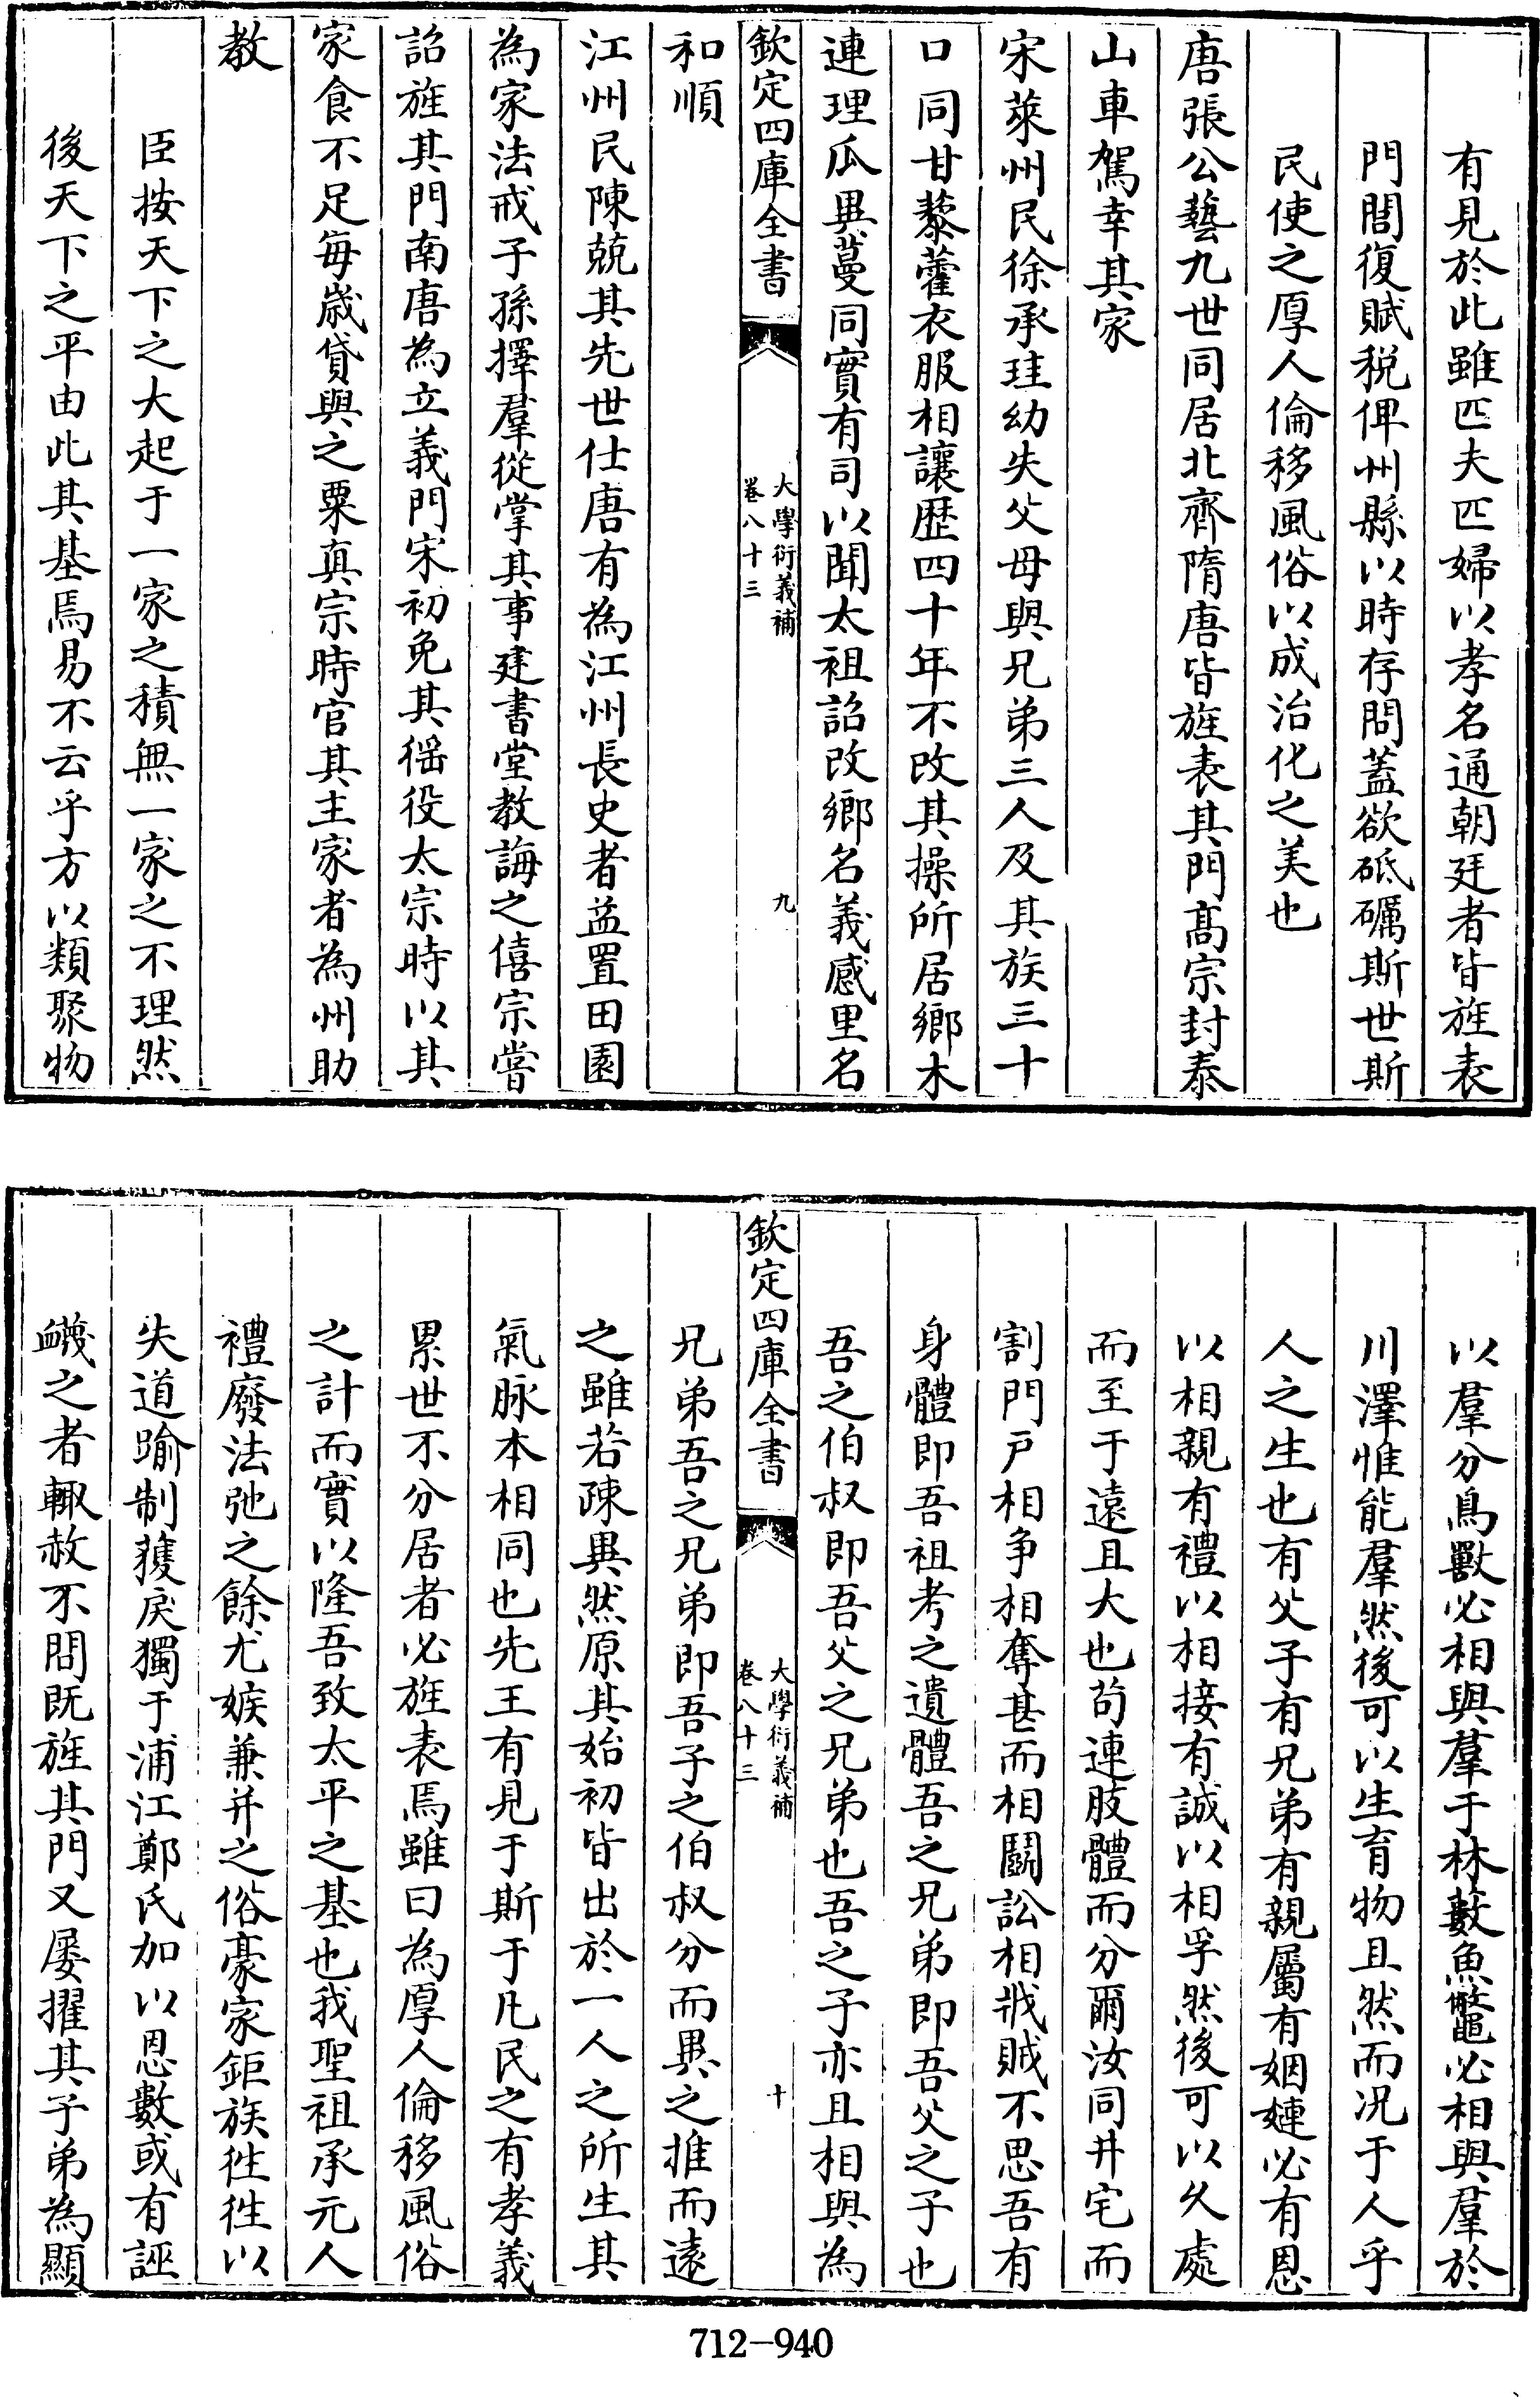 有見於此雖匹夫匹婦以孝名通朝廷者皆旌表
門閭復賦税俾州縣以時存問蓋欲砥礪斯世斯
民使之厚人倫移風俗以成治化之美也
唐張公藝九世同居北齊隋唐皆旌表其門髙宗封泰
山車駕幸其家
宋萊州民徐承珪幼失父母與兄弟三人及其族三十
口同甘藜藿衣服相讓歴四十年不改其操所居鄉木
連理瓜異蔓同實有司以聞太祖詔改鄉名義感里名
欽定四庫全書
大學衍義補
卷八十三
九
和順
江州民陳兢其先世仕唐有為江州長史者益置田園
為家法戒子孫擇羣從掌其事建書堂教誨之僖宗嘗
詔旌其門南唐為立義門宋初免其徭役太宗時以其
家食不足每歲貸與之粟真宗時官其主家者為州助
教
臣按天下之大起于一家之積無一家之不理然
後天下之平由此其基焉易不云乎方以類聚物
以羣分鳥獸必相與羣于林藪魚鼈必相與羣於
川澤惟能羣然後可以生育物且然而况于人乎
人之生也有父子有兄弟有親屬有姻婕必有恩
以相親有禮以相接有誠以相孚然後可以久處
而至于遠且大也苟連肢體而分爾汝同井宅而
割門戸相争相奪甚而相鬭訟相戕賊不思吾有
身體即吾祖考之遺體吾之兄弟即吾父之子也
吾之伯叔即吾父之兄弟也吾之子亦且相與為
欽定四庫全書
大學衍義補
卷八十三
十
兄弟吾之兄弟即吾子之伯叔分而異之推而遠
之雖若疎異然原其始初皆出於一人之所生其
氣脉本相同也先王有見于斯于凡民之有孝義
累世不分居者必旌表焉雖曰為厚人倫移風俗
之計而實以隆吾致太平之基也我聖祖承元人
禮廢法弛之餘尤嫉兼并之俗豪家鉅族徃徃以
失道踰制獲戾獨于浦江鄭氏加以恩數或有誣
衊之者輙赦不問既旌其門又屡擢其子弟為顯
712-940